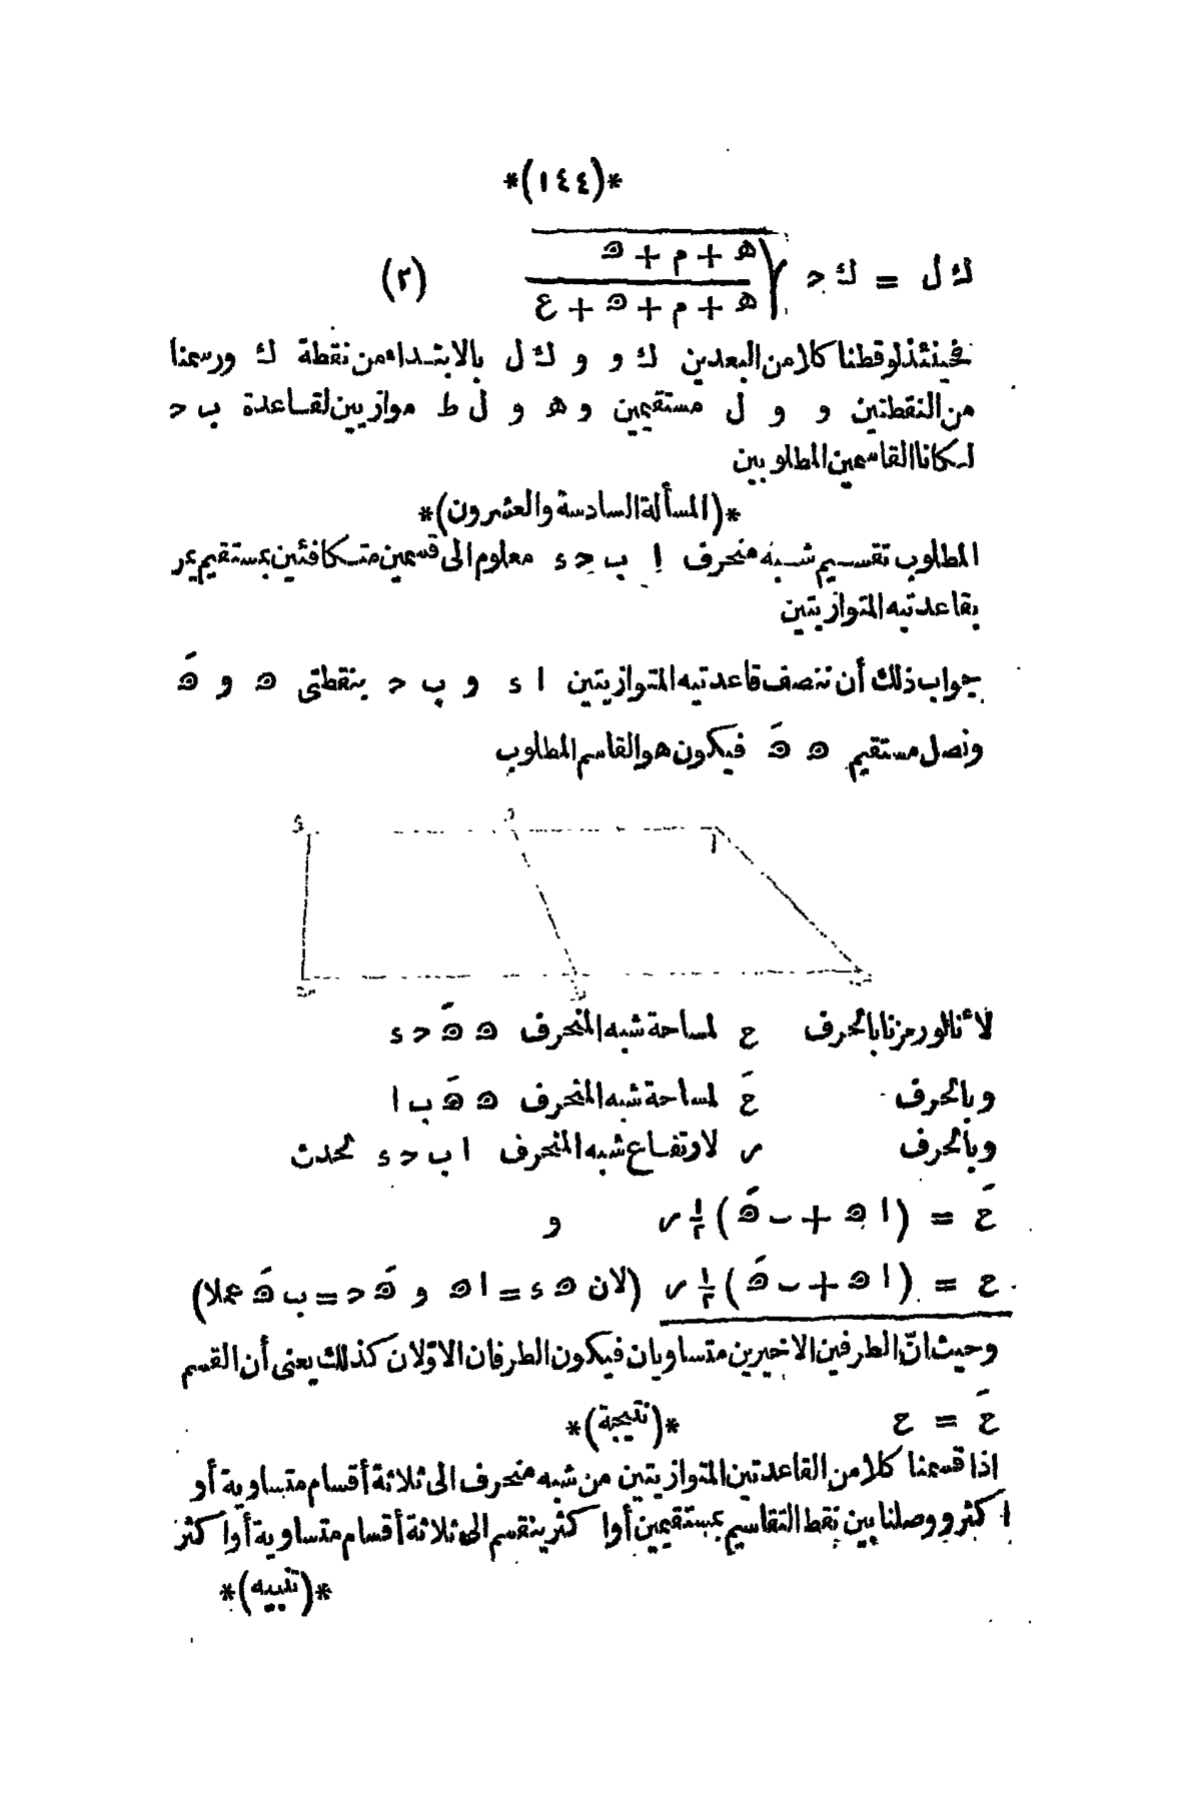 *(١٤٤)*
ك ل = ك ح √((ه + م + ھ) / (ه + م + ھ + ع)) (٢)
فحينئذ لو قطنا كلا من البعدين ك و و ك ل بالابتداء من نقطة ك ورسمنا
من النقطتين و و ل مستقيمين و ه و ل ط موازيين لقاعدة ب ح
لكانا القاسمين المطلوبين
*(المسألة السادسة والعشرون)*
المطلوب تقسيم شبه منحرف ا ب ح ء معلوم الى قسمين متكافئين بمستقيم يمر
بقاعدتيه المتوازيتين
جواب ذلك أن ننصف قاعدتيه المتوازيتين ا ء و ب ح بنقطتى ھ و ھَ
ونصل مستقيم ھ ھَ فيكون هو القاسم المطلوب
ء
ا
لأنا لو رمزنا بالحرف ع لمساحة شبه المنحرف ھ ھَ ح ء
وبالحرف عَ لمساحة شبه المنحرف ھ ھَ ب ا
وبالحرف ر لارتفاع شبه المنحرف ا ب ح ء لحدث
عَ = (ا ھ + ب ھَ) ١/٢ ر و
ع = (ا ھ + ب ھَ) ١/٢ ر (لان ھ ء = ا ھ و ھَ ح = ب ھَ عملا)
وحيث انّ الطرفين الاخيرين متساويان فيكون الطرفان الاوّلان كذلك يعنى أن القسم
عَ = ع *(نتيجة)*
اذا قسمنا كلا من القاعدتين المتوازيتين من شبه منحرف الى ثلاثة أقسام متساوية أو
اكثر ووصلنا بين نقط التقاسيم بمستقيمين أو اكثر ينقسم الى ثلاثة أقسام متساوية أو اكثر
*(تنبيه)*